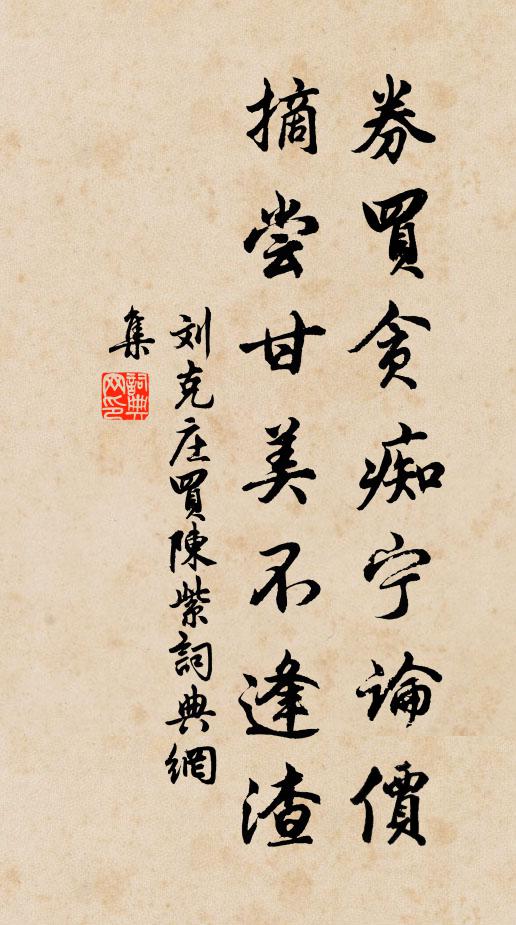 券買貪痴宁論價
摘尝甘美不逢渣
刘克庄買陳紫詞典網
集
詞典
网印